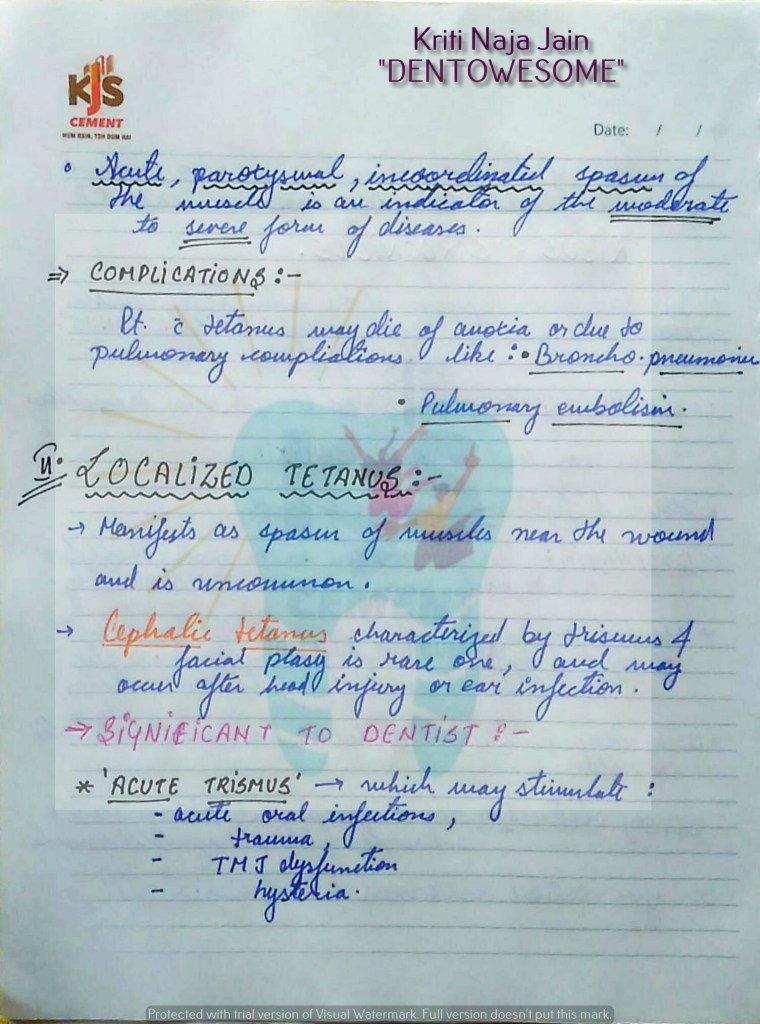 Kriti Naja Jain
"DENTOWESOME"
KJS
CEMENT
HUM HAIN, TOH DUM HAI
Date: / /
• Acute, paroxysmal, incoordinated spasm of
the muscle is an indicator of the moderate
to severe form of diseases.
⇒ COMPLICATIONS :-
Pt. c̄ tetanus may die of anoxia or due to
pulmonary compliations like : • Broncho-pneumonia
• Pulmonary embolism.
II. LOCALIZED TETANUS :-
→ Manifests as spasm of muscles near the wound
and is uncommon.
→ Cephalic tetanus characterized by trismus &
facial plasy is rare one, and may
occur after head injury or ear infection.
→ SIGNIFICANT TO DENTIST :-
* 'ACUTE TRISMUS' → which may stimulate :
- acute oral infections,
- trauma,
- TMJ dysfunction
- hysteria.
Protected with trial version of Visual Watermark. Full version doesn't put this mark.